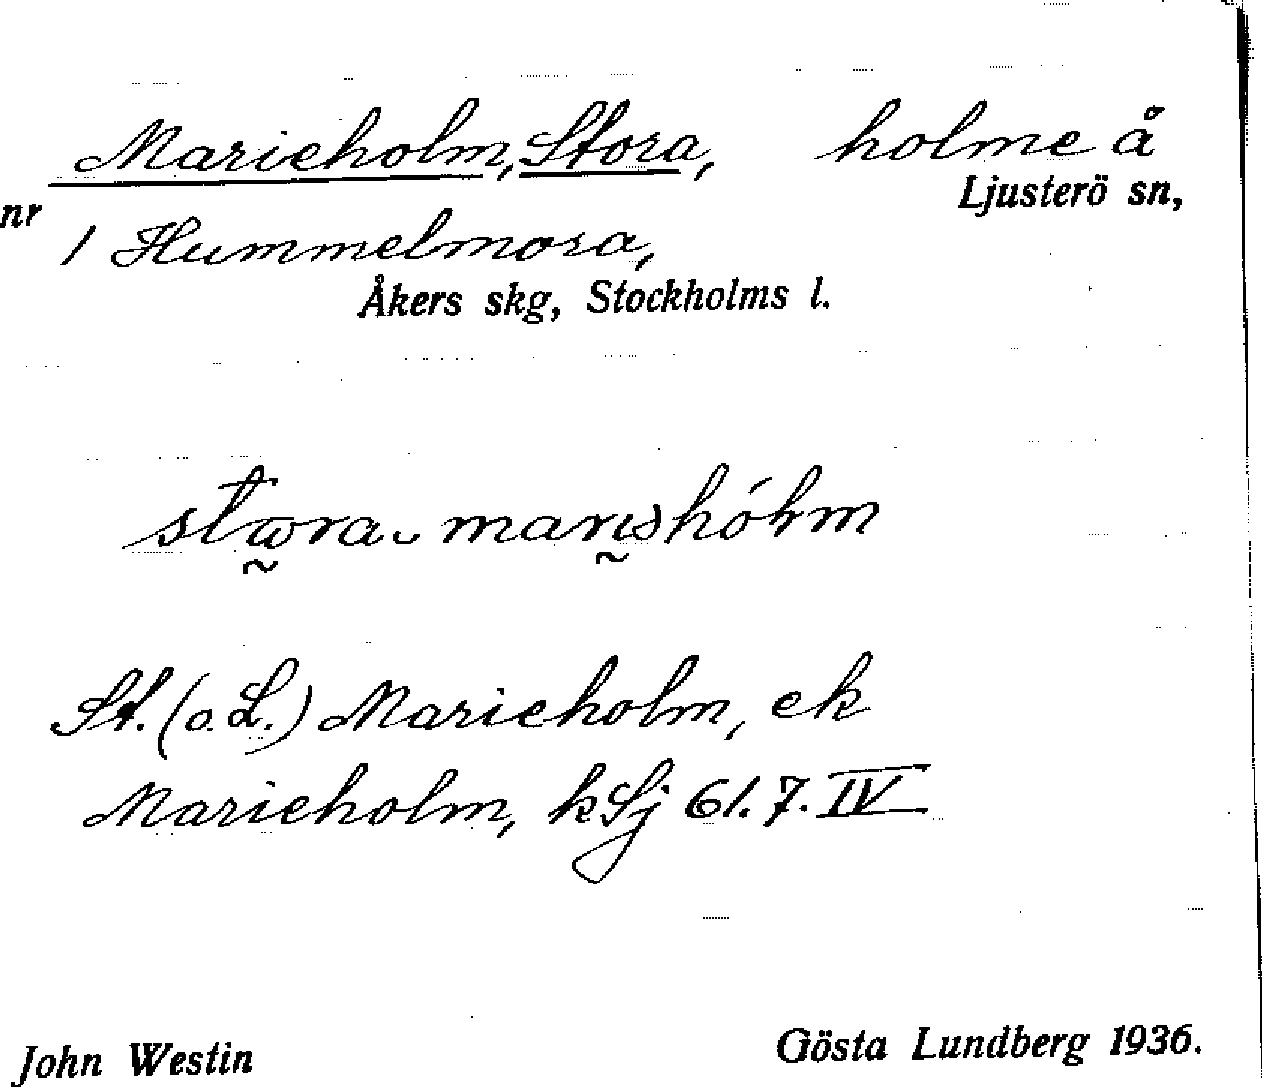 Marieholm, Stora, holme å
Ljusterö sn,
nr 1 Hummelmora,
Åkers skg, Stockholms l.
St. (o. L.) Marieholm, ek
Marieholm, kSj 61. 7. IV
John Westin Gösta Lundberg 1936.